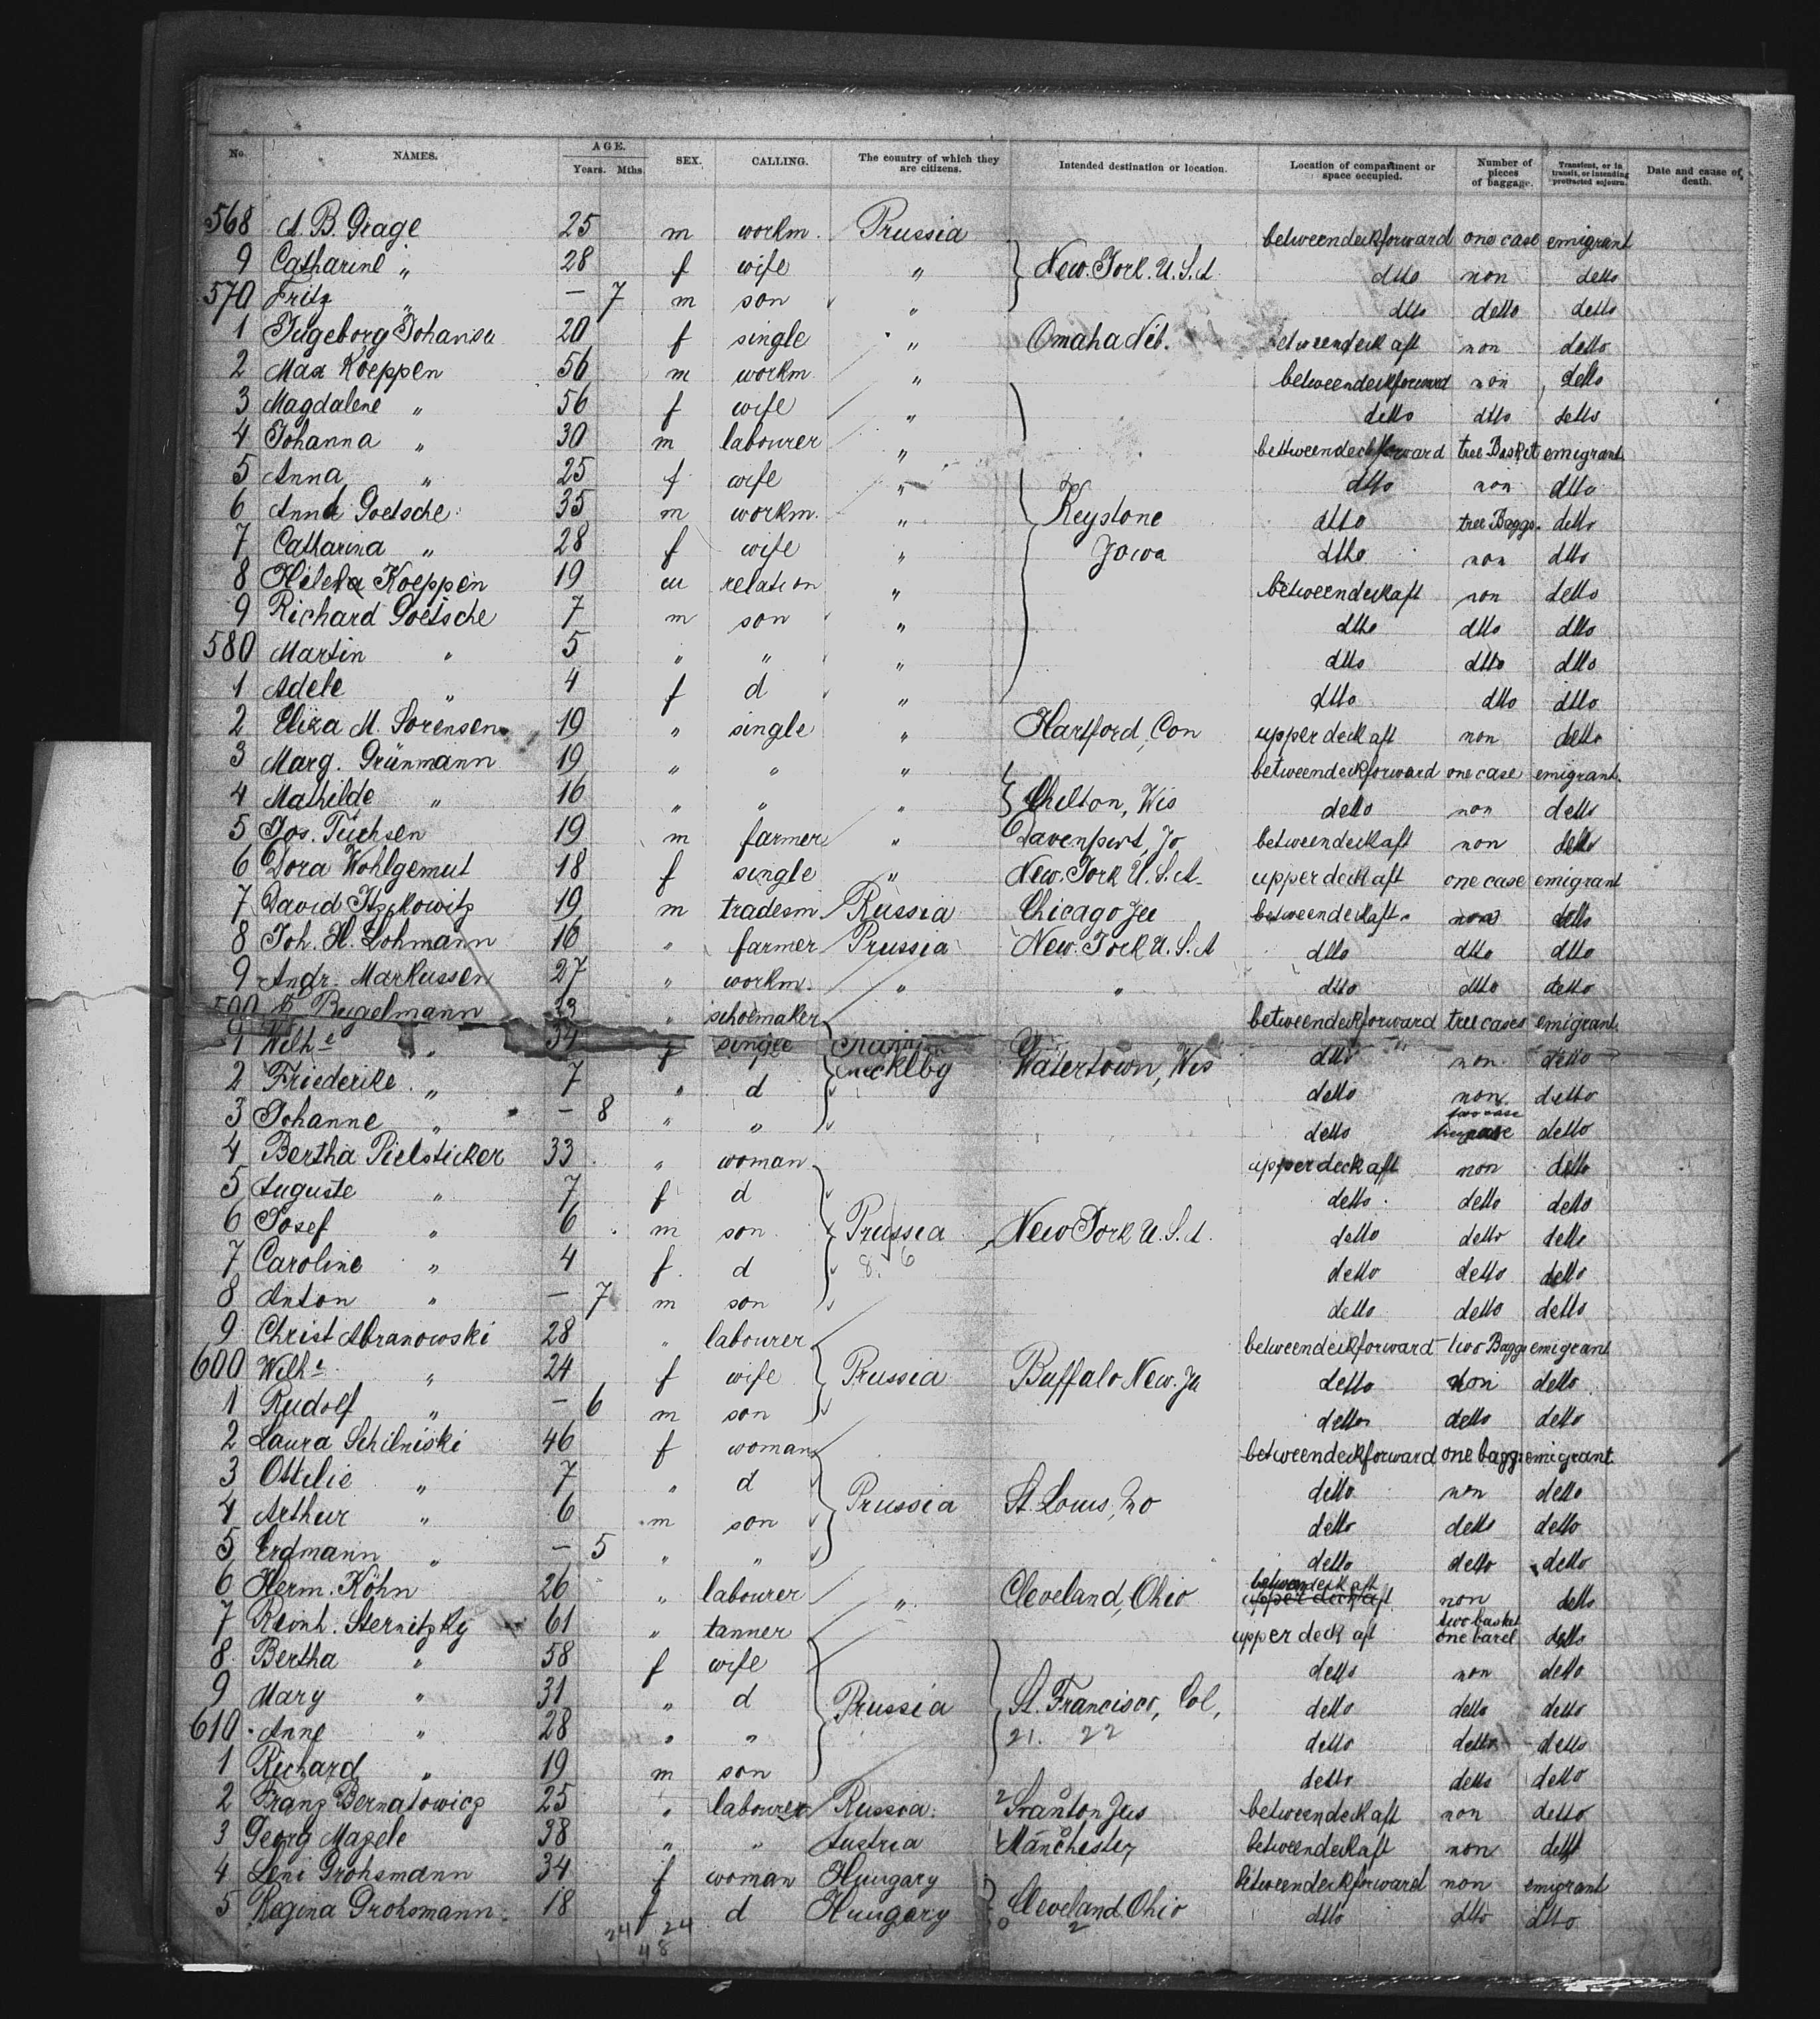 No. NAMES. AGE. Years. Mths. SEX. CALLING. The country of which they are citizens. Intended destination or location. Location of compartment or space occupied. Number of pieces of baggage. Transient, or in transit, or intending protracted sojourn. Date and cause of death.
568 A. B. 25 m workm. Prussia betweendeckforward one case emigrant
9 Catharine " 28 f wife " New. York. U. S. A. dtto non detto
570 Fritz " — 7 m son " dtto detto detto
1 Ingeborg Johansa 20 f single " Omaha Neb. betweendeck aft non detto
2 Max Koeppen 56 m workm. " betweendeckforward non detto
3 Magdalene " 56 f wife " detto dtto detto
4 Johanna " 30 m labourer " betweendeckforward tree Basket emigrant
5 Anna " 25 f wife " dtto non dtto
6 Anna Goetsche 35 m workm. " Keystone dtto tree Baggs. detto
7 Catharina " 28 f wife " Jowa dtto non dtto
8 Helena Koeppen 19 m relation " betweendeckaft non detto
9 Richard Goetsche 7 m son " dtto dtto dtto
580 Martin " 5 " " " dtto dtto dtto
1 Adele " 4 f d " dtto dtto dtto
2 Eliza M. Sorensen 19 " single " Hartford, Con upperdeck aft non detto
3 Marg. Grünmann 19 " " " betweendeckforward one case emigrant.
4 Mathilde " 16 " " " Chelton, Wis detto non detto
5 Jos. Tüchsen 19 m farmer " Davenport, Jo betweendeckaft non detto
6 Dora Wohlgemut 18 f single " New. York U. S. A. upperdeck aft one case emigrant
7 David Itzkowitz 19 m tradesm Russia Chicago betweendeckaft. non detto
8 Joh. H. Lohmann 16 " farmer Prussia New. York U. S. A dtto dtto dtto
9 Andr. Markussen 27 " workm. " " dtto dtto detto
590 Bugelmann 33 " schoemaker betweendeckforward tree cases emigrant.
1 Wilhe " 34 f single Mecklbg Watertown, Wis dtto non detto
2 Friederike " 7 " d detto non detto
3 Johanne " — 8 " " detto two case detto
4 Bertha Pielsticker 33 " woman upperdeck aft non detto
5 Auguste " 7 f d detto detto detto
6 Josef " 6 m son Prussia New York U. S. A. detto detto detto
7 Caroline " 4 f. d 8. 6 detto detto detto
8 Anton " — 7 m son detto detto detto
9 Christ Abranowski 28 " labourer betweendeckforward two Baggs emigrant
600 Wilhe " 24 f wife Prussia Buffalo New. detto non detto
1 Rudolf " — 6 m son detto detto detto
2 Laura Schilniski 46 f woman betweendeckforward one bagg emigrant.
3 Ottilie " 7 " d detto non detto
4 Arthur " 6 m son Prussia St. Louis, Mo detto detto detto
5 Erdmann " — 5 " " detto detto detto
6 Herm. Köhn 26 " labourer " Cleveland, Ohio betweendeck aft upper deck aft non detto
7 Reinh. Sternitzky 61 " tanner upper deck aft two basket one barel detto
8 Bertha " 58 f wife detto non detto
9 Mary " 31 " d Prussia St. Francisco, Col, detto detto detto
610 Anne " 28 " " 21. 22 detto detto detto
1 Richard " 19 m son detto detto detto
2 Franz Bernatowicz 25 " labourer Russia. Sranton betweendeckaft non detto
3 Georg Mazele 38 " " Austria Manchester betweendeckaft non dett
4 Leni Grohsmann 34 f woman Hungary betweendeckforward non emigrant
5 Regina Grohsmann 18 f d Hungary Cleveland. Ohio dtto dtto dtto
24 24 2
48